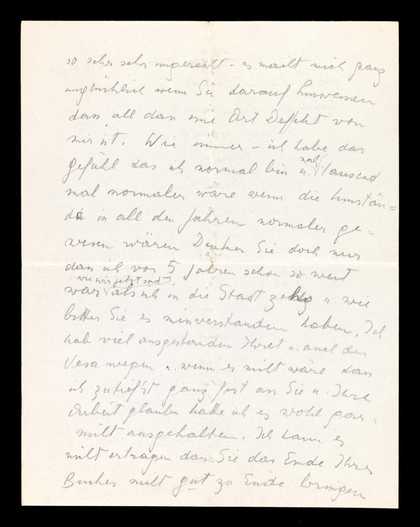 so sehr sehr ungerecht – es macht mich ganz
unglücklich wenn Sie darauf hinweisen
dass all das eine Art Defekt von
mir ist. Wie immer – ich habe das
Gefühl das ich normal bin u. noch tausend
mal normaler wäre wenn die Umstän-
de in all den Jahren normaler ge-
wesen wären Denken Sie doch nur
dass ich vor 5 Jahren schon so weit
war wie wir jetzt sind als ich in die Stadt u. wie
bitter Sie es missverstanden haben. Ich
hab viel ausgestanden Ihret u. auch der
wegen u. wenn es nicht wäre dass
ich zutiefst ganz fest an Sie u. Ihre
Arbeit glauben hätte ich es wohl gar
nicht ausgehalten. Ich kann es
nicht ertragen dass Sie das Ende Ihres
Buches nicht gut zu Ende bringen